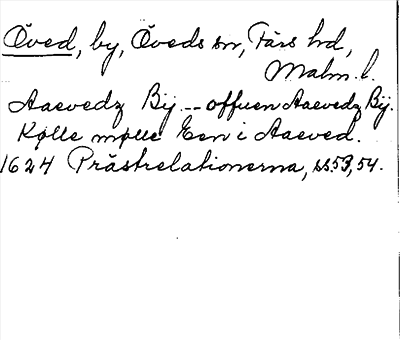 Öved, by, Öveds sn, Färs hd,
Malm. l.
Aaevedz Bij -- offuen Aaevedz Bij.
Kølle mølle Een i Aaeved.
1624 Prästrelationerna, ss. 53, 54.